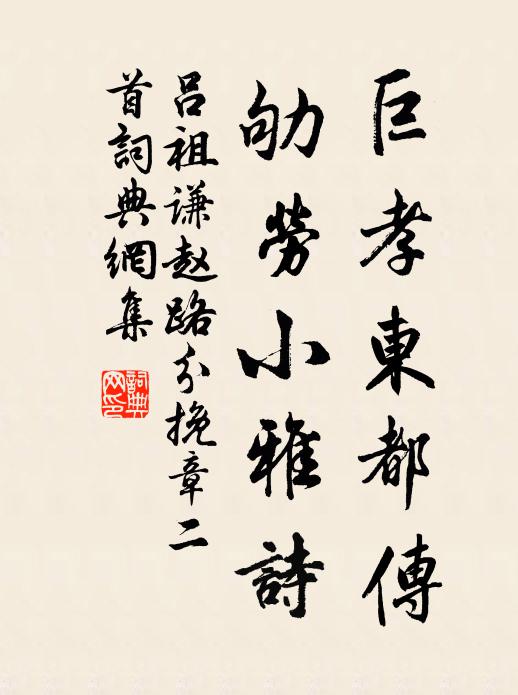 巨孝東都傳
劬勞小雅詩
吕祖謙赵路分挽章二
首詞典網集
詞典
网印